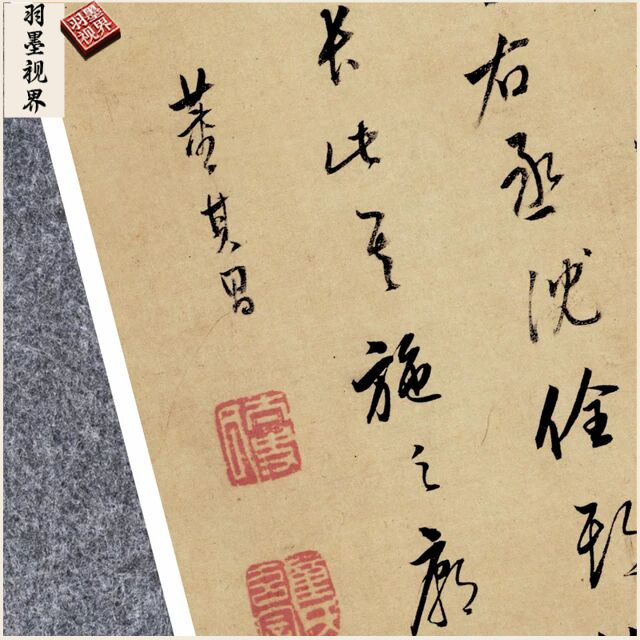 羽墨视界
羽墨视界
右丞沈佺期
長此施之
董其昌